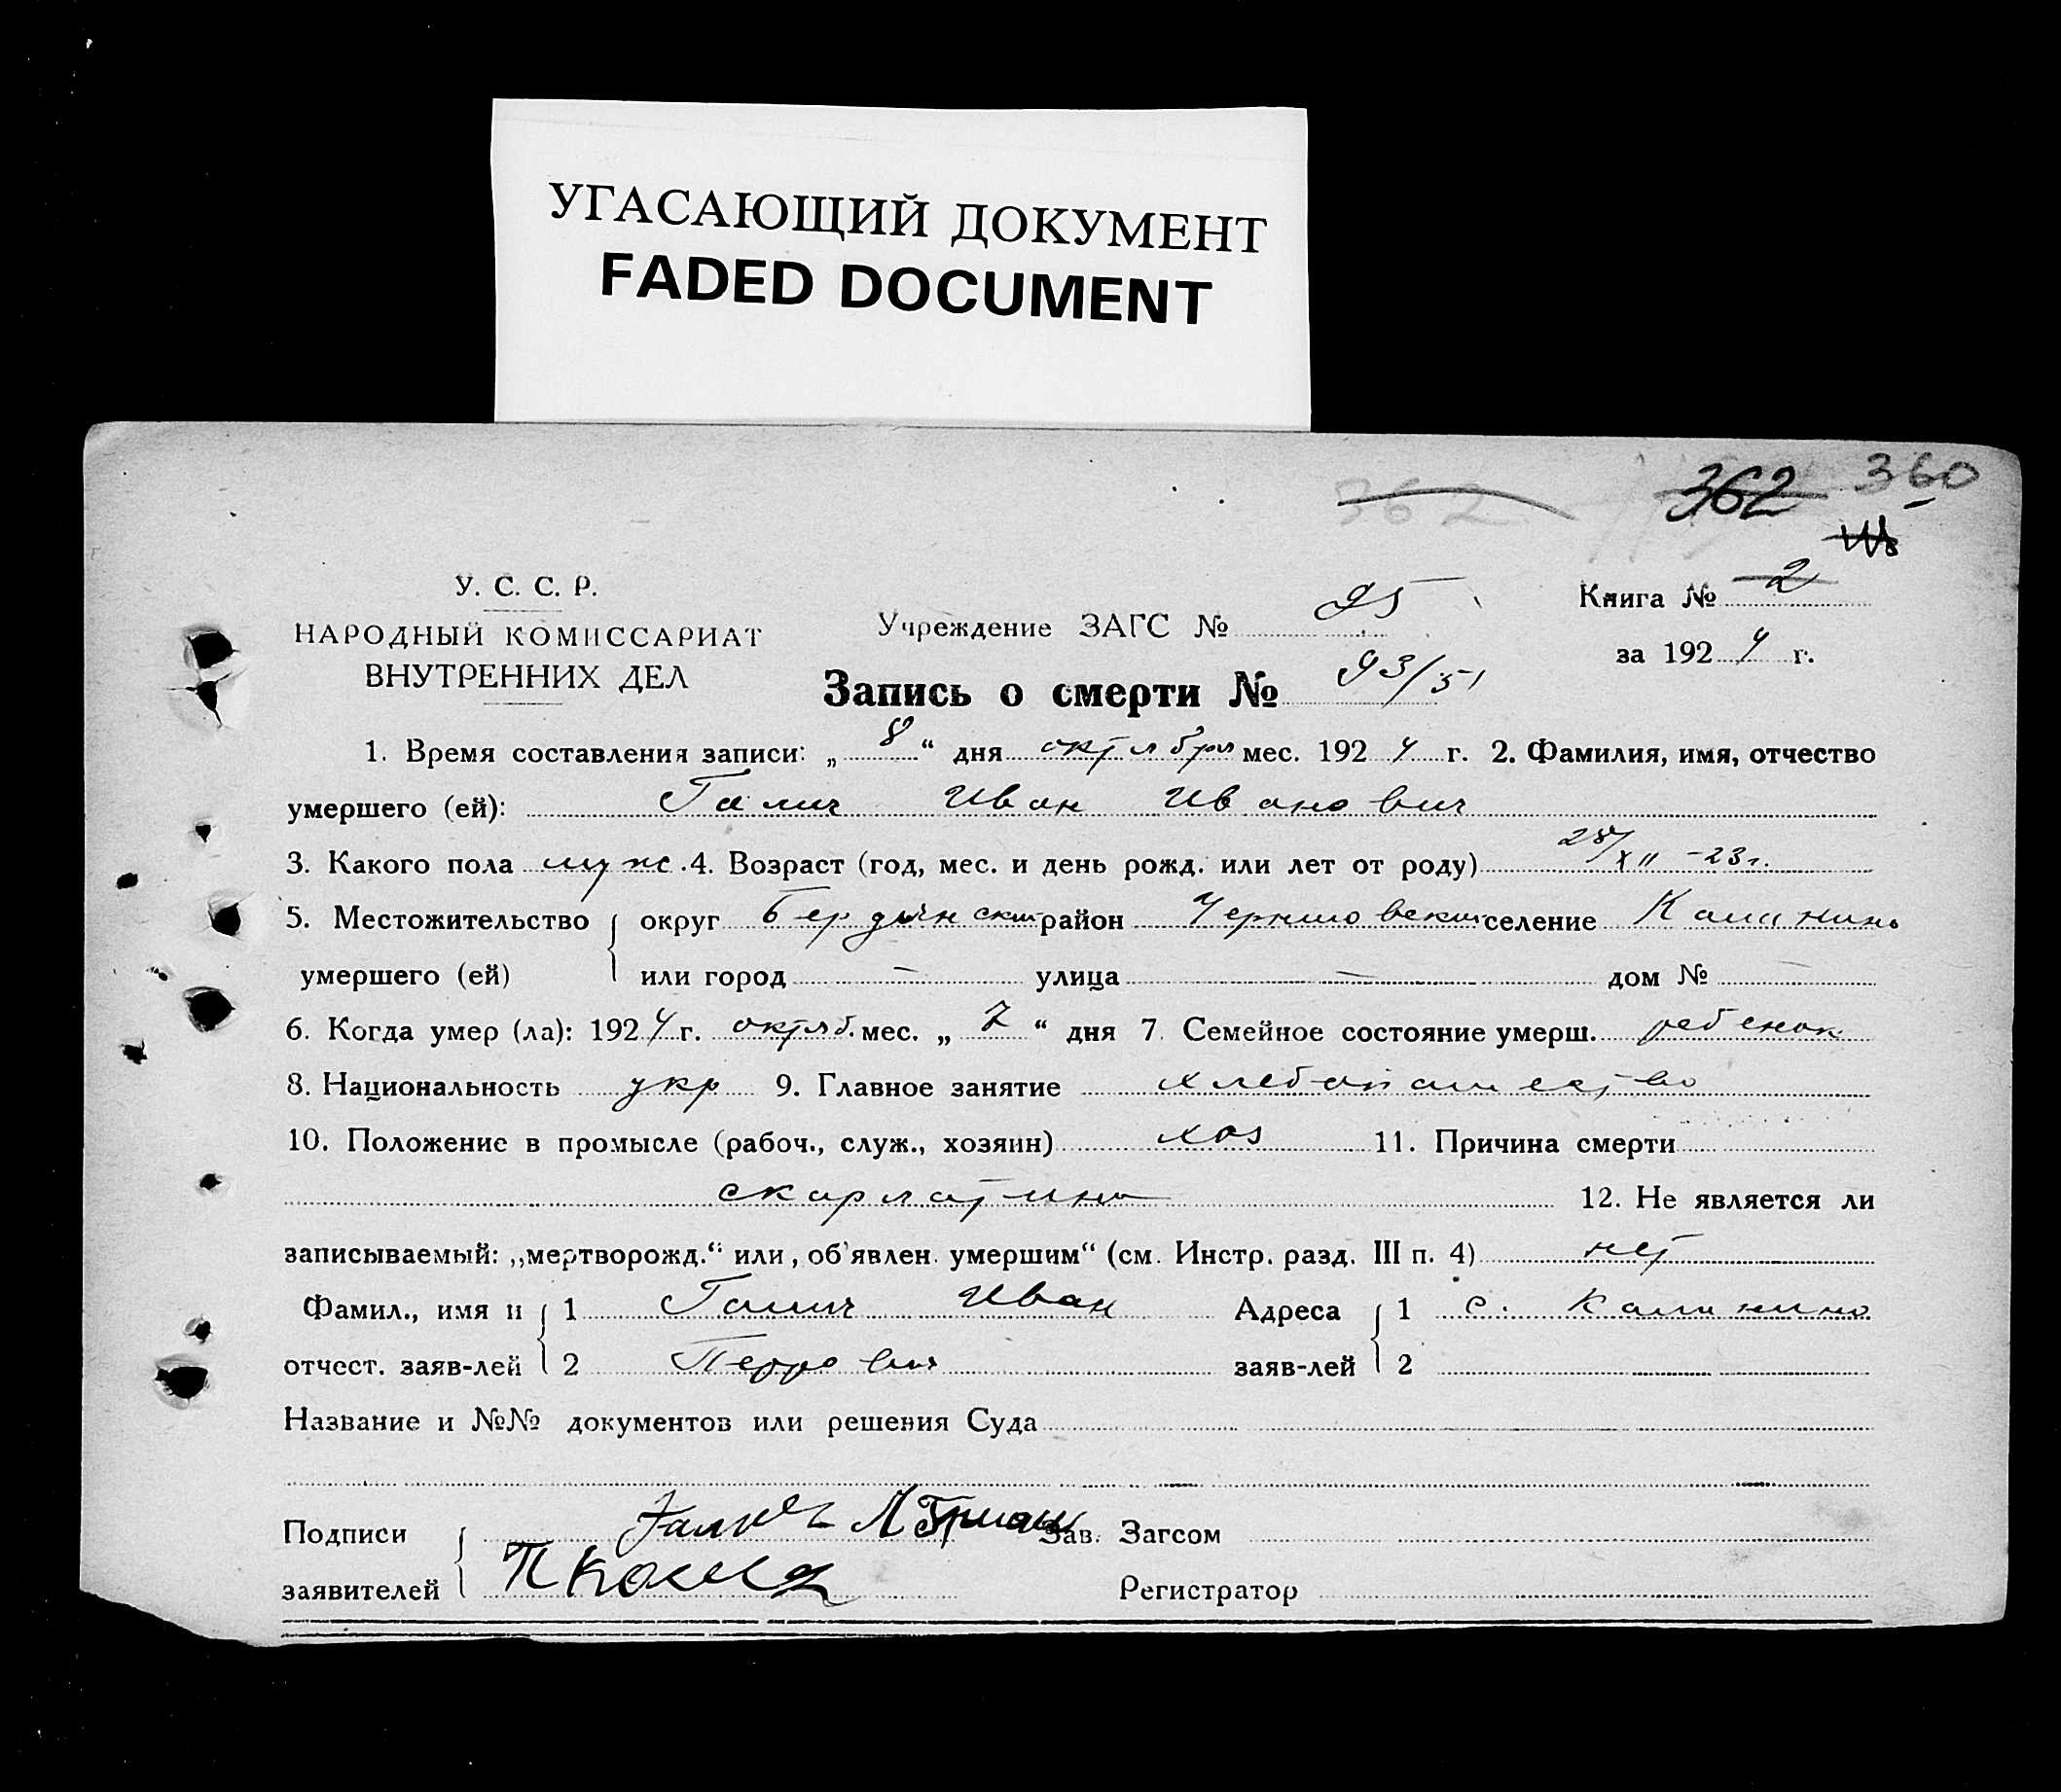 УГАСАЮЩИЙ ДОКУМЕНТ
FADED DOCUMENT
362 362 360
У. С. С. Р.
НАРОДНЫЙ КОМИССАРИАТ
ВНУТРЕННИХ ДЕЛ
Учреждение ЗАГС № 95
Книга № 2
за 1924 г.
Запись о смерти № 93/51
1. Время составления записи: „8“ дня октября мес. 1924 г. 2. Фамилия, имя, отчество
умершего (ей): Галич Иван Иванович
3. Какого пола муж. 4. Возраст (год, мес. и день рожд. или лет от роду) 28/XII-23г.
5. Местожительство округ Бердянский район селение Калинино
умершего (ей) или город — улица — дом № —
6. Когда умер (ла): 1924 г. октяб. мес. „7“ дня 7. Семейное состояние умерш. ребенок
8. Национальность укр 9. Главное занятие хлебопашество
10. Положение в промысле (рабоч., служ., хозяин) хоз 11. Причина смерти
скарлатина 12. Не является ли
записываемый: „мертворожд.“ или, об'явлен. умершим“ (см. Инстр. разд. III п. 4) нет
Фамил., имя и 1 Галич Иван Адреса 1 с. Калинино
отчест. заяв-лей 2 Петрович заяв-лей 2
Название и №№ документов или решения Суда
Подписи Зав. Загсом
заявителей Регистратор